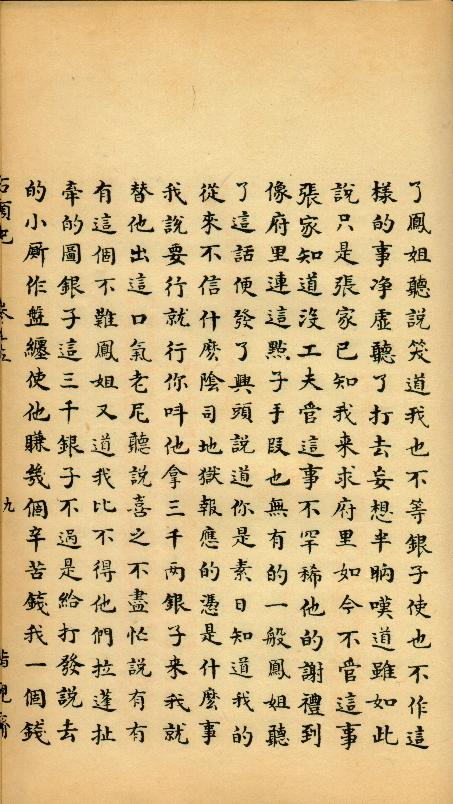 了鳳姐聽說笑道我也不等銀子使也不作這
樣的事净虛聽了打去妄想半晌嘆道雖如此
說只是張家已知我來求府里如今不管這事
張家知道沒工夫管這事不罕稀他的謝禮到
像府里連這㸃子手段也無有的一般鳳姐聽
了這話便發了興頭說道你是素日知道我的
從來不信什麽陰司地獄報應的憑是什麽事
我說要行就行你呌他拿三千兩銀子來我就
替他出這口氣老尼聽說喜之不盡忙說有有
有這個不難鳳姐又道我比不得他們拉蓬扯
牵的圖銀子這三千銀子不過是給打發說去
的小厮作盤纏使他賺幾個辛苦錢我一個錢
九